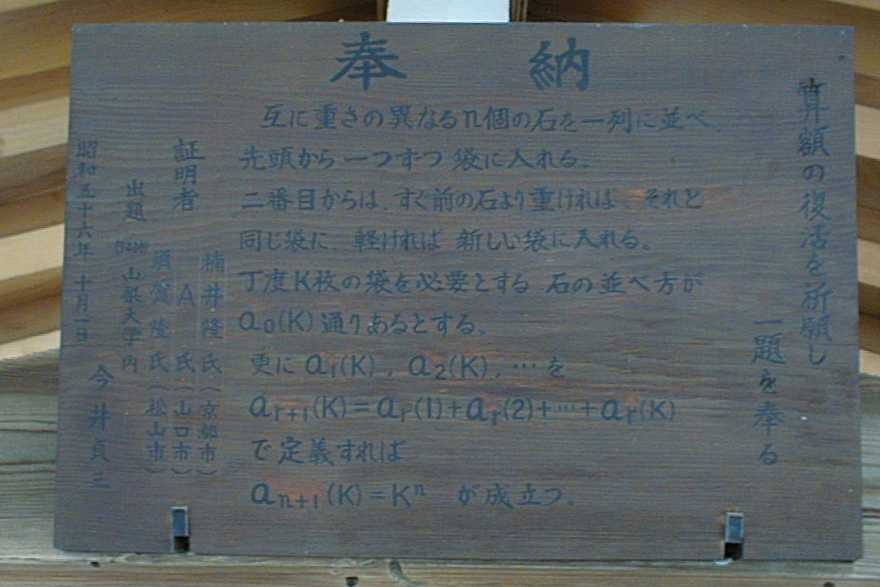 奉納
算額の復活を祈願し
一題を奉る
互に重さの異なるn個の石を一列に並べ、
先頭から一つずつ袋に入れる。
二番目からは、すぐ前の石より重ければ それと
同じ袋に、軽ければ 新しい袋に入れる。
丁度K枚の袋を必要とする 石の並べ方が
a₀(K)通りあるとする。
更に a₁(K), a₂(K), … を
aᵣ₊₁(K)=aᵣ(1)+aᵣ(2)+…+aᵣ(K)
で定義すれば
aₙ₊₁(K)=Kⁿ が成立つ。
証明者
楠井隆氏(京都市)
A 氏(山口市)
須賀隆氏(松山市)
出題 山梨大学内
今井貞三
昭和五十六年 十月一日